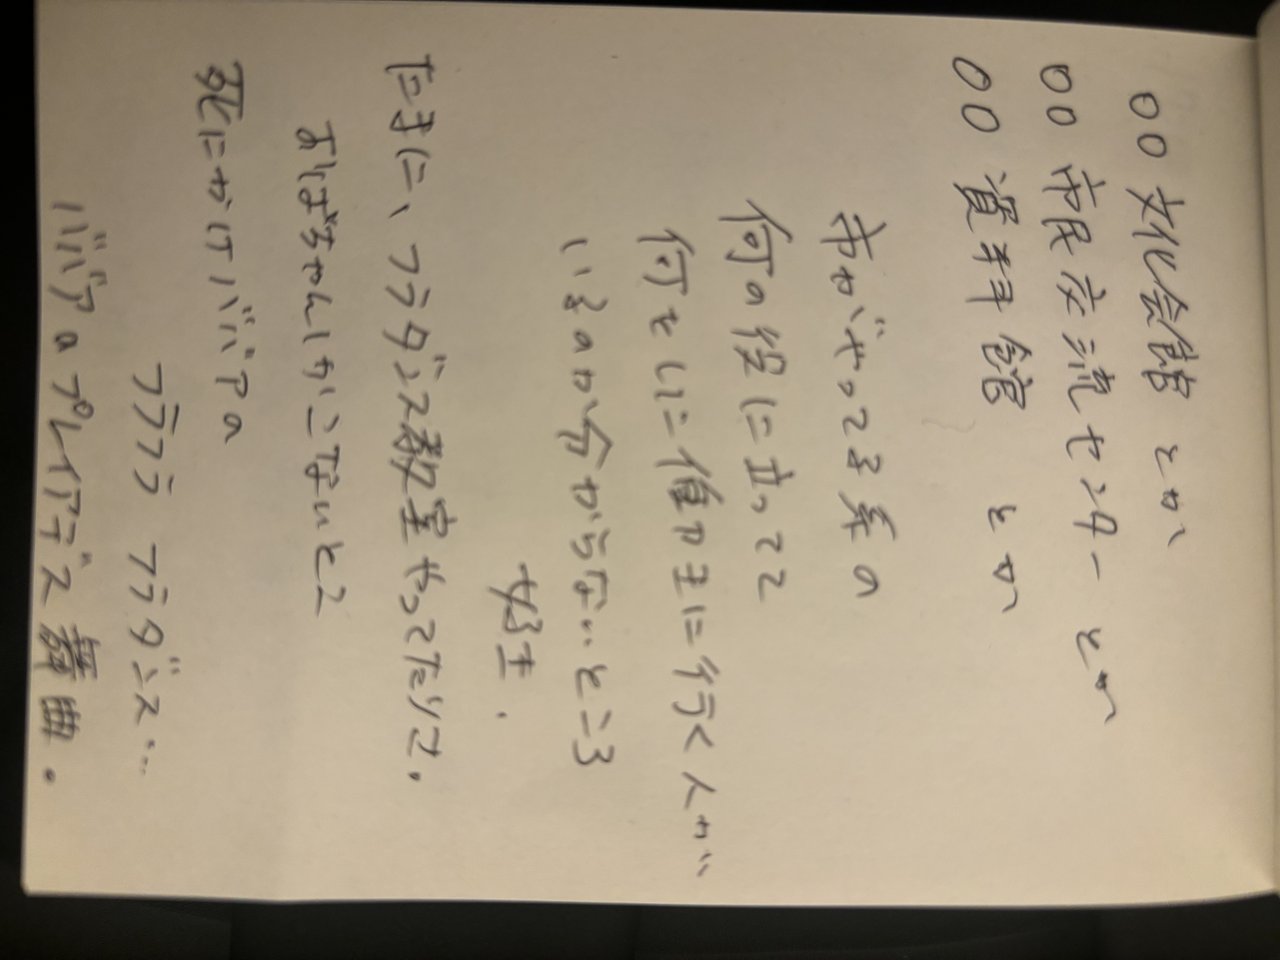 ○○文化会館 とか
○○市民交流センター とか
○○資料館 とか
市がやってる系の
何の役に立ってて
何をしに値力主に行く人が
いるのか分からないところ
好き.
たまに、フラダンス教室やってたりさ.
おばちゃんしかこないとこ
死にかけババアの
フラフラ フラダンス…
ババアのプレイアデス舞曲.